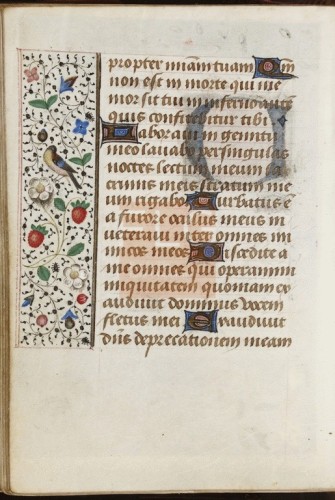 propter miam tuam Qm
non est in morte qui me
mor sit tui in inferno aute
quis confitebitur tibi
Laboraui in gemitu
meo lauabo per singulas
noctes lectum meum la
crimis meis stratum me
um rigabo Turbatus e
a furore oculus meus in
ueteraui inter omnes ini
micos meos Discedite a
me omnes qui operamini
iniquitatem quoniam ex
audiuit dominus vocem
fletus mei Exaudiuit
dns deprecationem meam